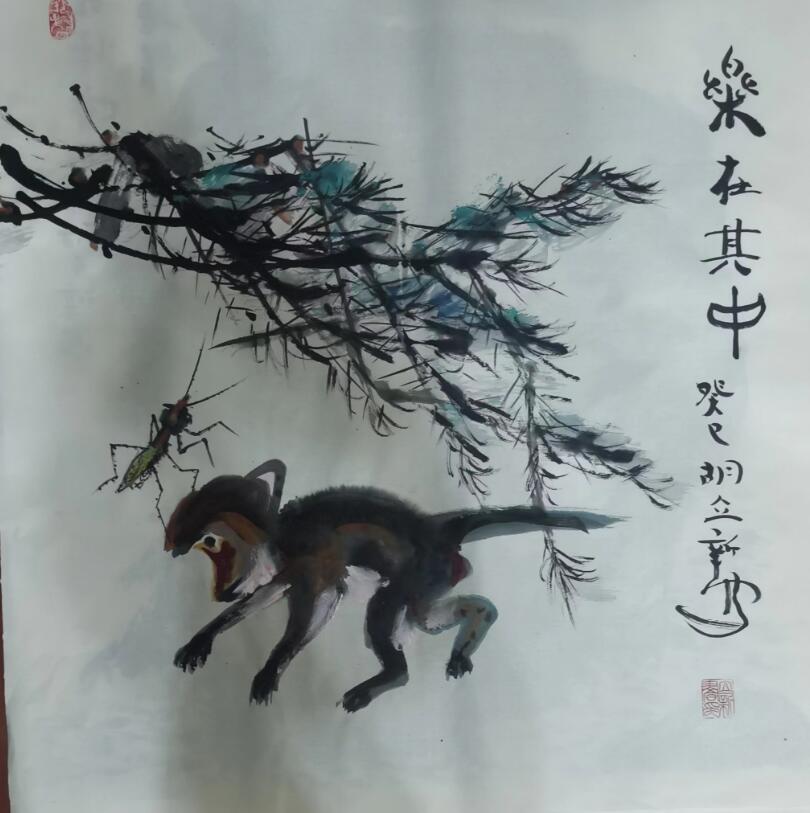 樂在其中
癸巳胡立新写